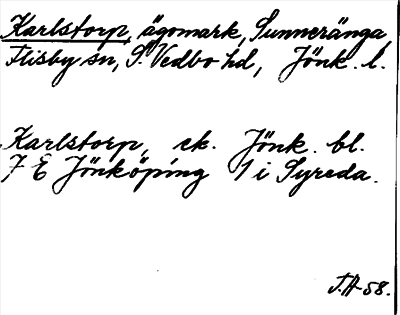 Karlstorp, ägomark, Sunneränga
Flisby sn, S. Vedbo hd, Jönk. l.
Karlstorp, ek. Jönk. bl.
7 E Jönköping 1 i Syreda.
J.A-58.